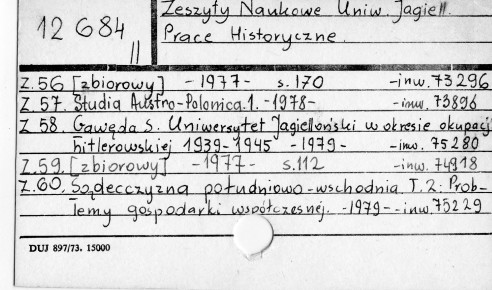 Zeszyty Naukowe Uniw. Jagiell.
12 684
II
Prace Historyczne.
Z.56 [zbiorowy] -1977- s.170 -inw.73296
Z 57. Studia Austro-Polonica.1. -1978- -inw. 73896
Z 58. Gawęda S. Uniwersytet Jagielloński w okresie okupacji
hitlerowskiej 1939-1945 -1979- -inw. 75280
Z.59. [zbiorowy] -1977- s.112 -inw. 74918
Z.60. Sądecczyzna południowo-wschodnia. T.2: Prob-
lemy gospodarki współczesnej. -1979- -inw.75229
DUJ 897/73. 15000